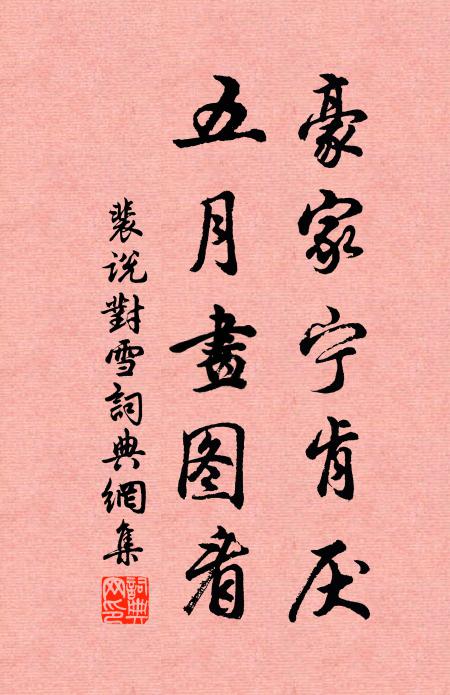 豪家宁肯厌
五月畫图看
裴说對雪詞典網集
詞典网印